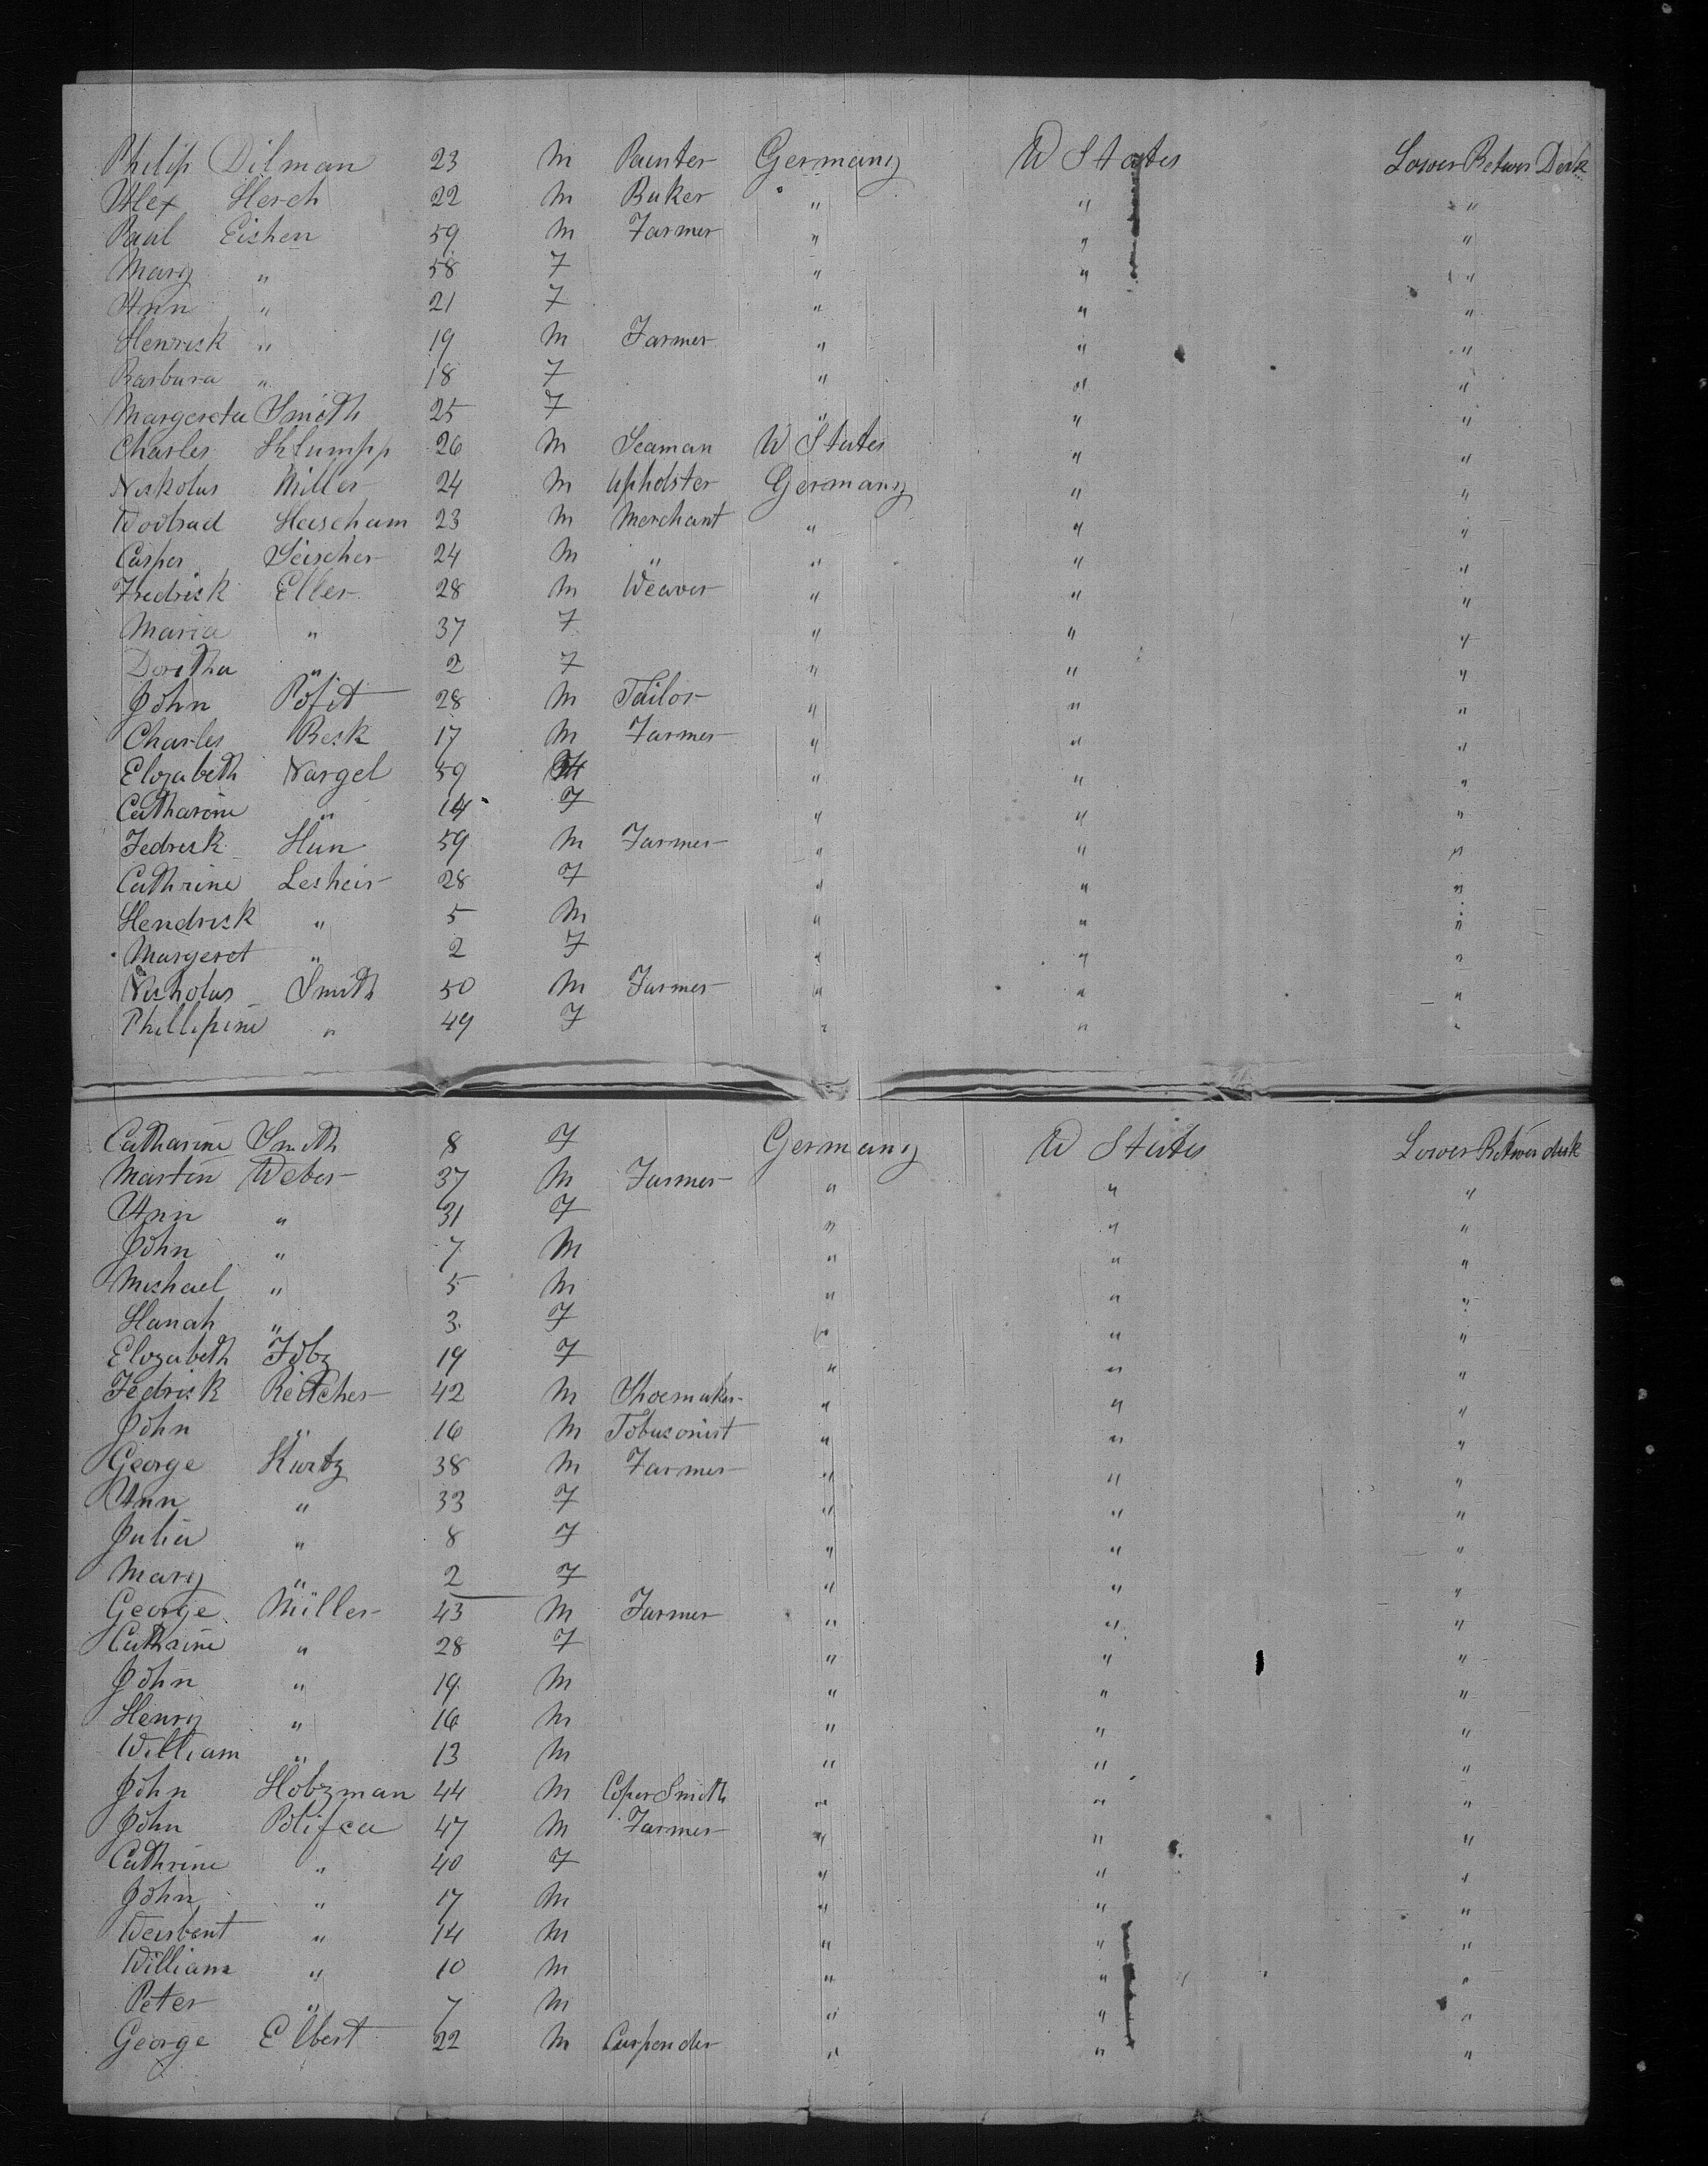 Philip Dilman 23 M Painter Germany U States Lower Betwen Deck
Alex Herch 22 M Baker " " "
Paul Eishen 59 M Farmer " " "
Mary " 58 F " " "
Ann " 21 F " " "
Henrick " 19 M Farmer " " "
Barbara " 18 F " " "
Margereta Smith 25 F " " "
Charles Sklumpp 26 M Seaman U States " "
Nickolas Miller 24 M Upholster Germany " "
Heischam 23 M Merchant " " "
Casper Seischer 24 M " " " "
Fredrick Eller 28 M Weaver " " "
Maria " 37 F " " "
Doritha " 2 F " " "
John Pofit 28 M Tailor " " "
Charles Beck 17 M Farmer " " "
Elizabeth Nargel 59 " " "
Catharine " 14 F " " "
Fedrick Hun 59 M Farmer " " "
Cathrine Lesheir 28 F " " "
Hendrick " 5 M " " "
Margeret " 2 F " " "
Nicholas Smith 50 M Farmer " " "
Phillipine " 49 F " " "
Catharine Smith 8 F Germany U States Lower Betwen deck
Martin Weber 37 M Farmer " " "
Ann " 31 F " " "
John " 7 M " " "
Michael " 5 M " " "
Hanah " 3 F " " "
Elizabeth Folz 19 F " " "
Fedrick Reitcher 42 M Shoemaker " " "
John " 16 M Tobaconist " " "
George Kurtz 38 M Farmer " " "
Ann " 33 F " " "
Julia " 8 F " " "
Mary " 2 F " " "
George Müller 43 M Farmer " " "
Cathrine " 28 F " " "
John " 19 M " " "
Henry " 16 M " " "
William " 13 M " " "
John Holzman 44 M Coper Smith " " "
John Polifca 47 M Farmer " " "
Cathrine " 40 F " " "
John " 17 M " " "
Weisbent " 14 M " " "
William " 10 M " " "
Peter " 7 M " " "
George Elbert 22 M Carpender " " "